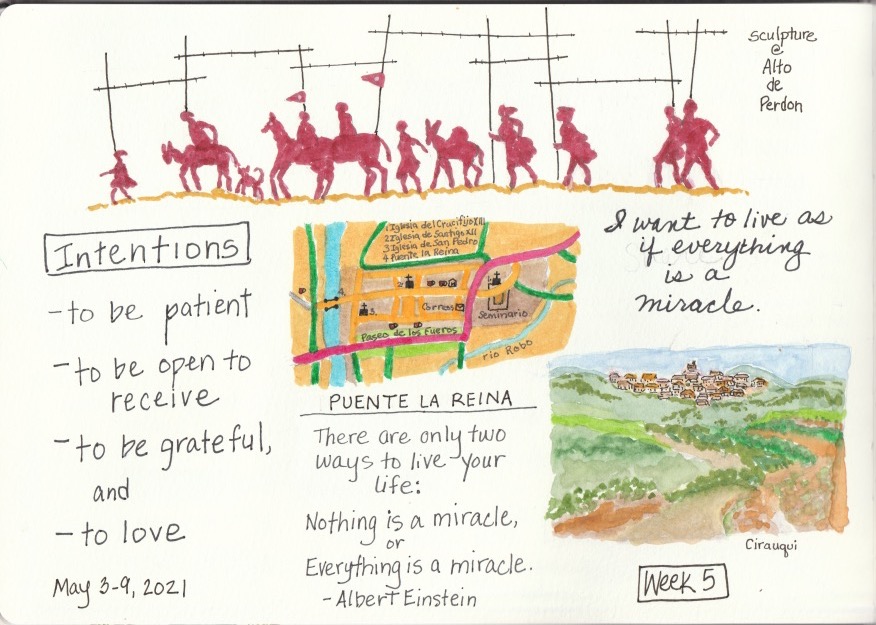 Sculpture
@
Alto
de
Perdon
Intentions
-to be patient
-to be open to
receive
-to be grateful,
and
-to love
May 3-9, 2021
1 Iglesia del Crucifijo XII
2 Iglesia de Santigo XII
3 Iglesia de San Pedro
4 Puente la Reina
4.
2
1
3.
Correos
Seminario
Paseo de los Fueros
rio Robo
PUENTE LA REINA
There are only two
ways to live your
life:
Nothing is a miracle,
or
Everything is a miracle.
-Albert Einstein
I want to live as
if everything
is a
miracle.
Cirauqui
Week 5